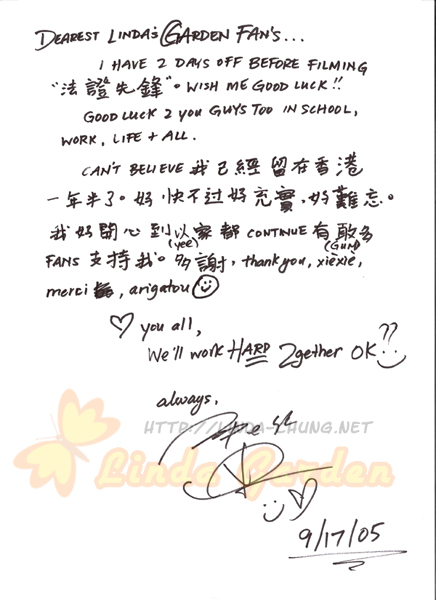 DEAREST LINDA'S GARDEN FAN'S...
I HAVE 2 DAYS OFF BEFORE FILMING
"法證先鋒"。WISH ME GOOD LUCK!!
GOOD LUCK 2 YOU GUYS TOO IN SCHOOL,
WORK, LIFE + ALL.
CAN'T BELIEVE 我已經留在香港
一年半了。好快不过好充實,好難忘。
我好開心到以家都 CONTINUE 有敢多
(yee) (GUM)
FANS 支持我。多謝, thank you, xièxiè,
merci, arigatou
you all,
We'll work HARD 2gether OK??
always,
HTTP://LINDA-CHUNG.NET
Linda Garden
9/17/05